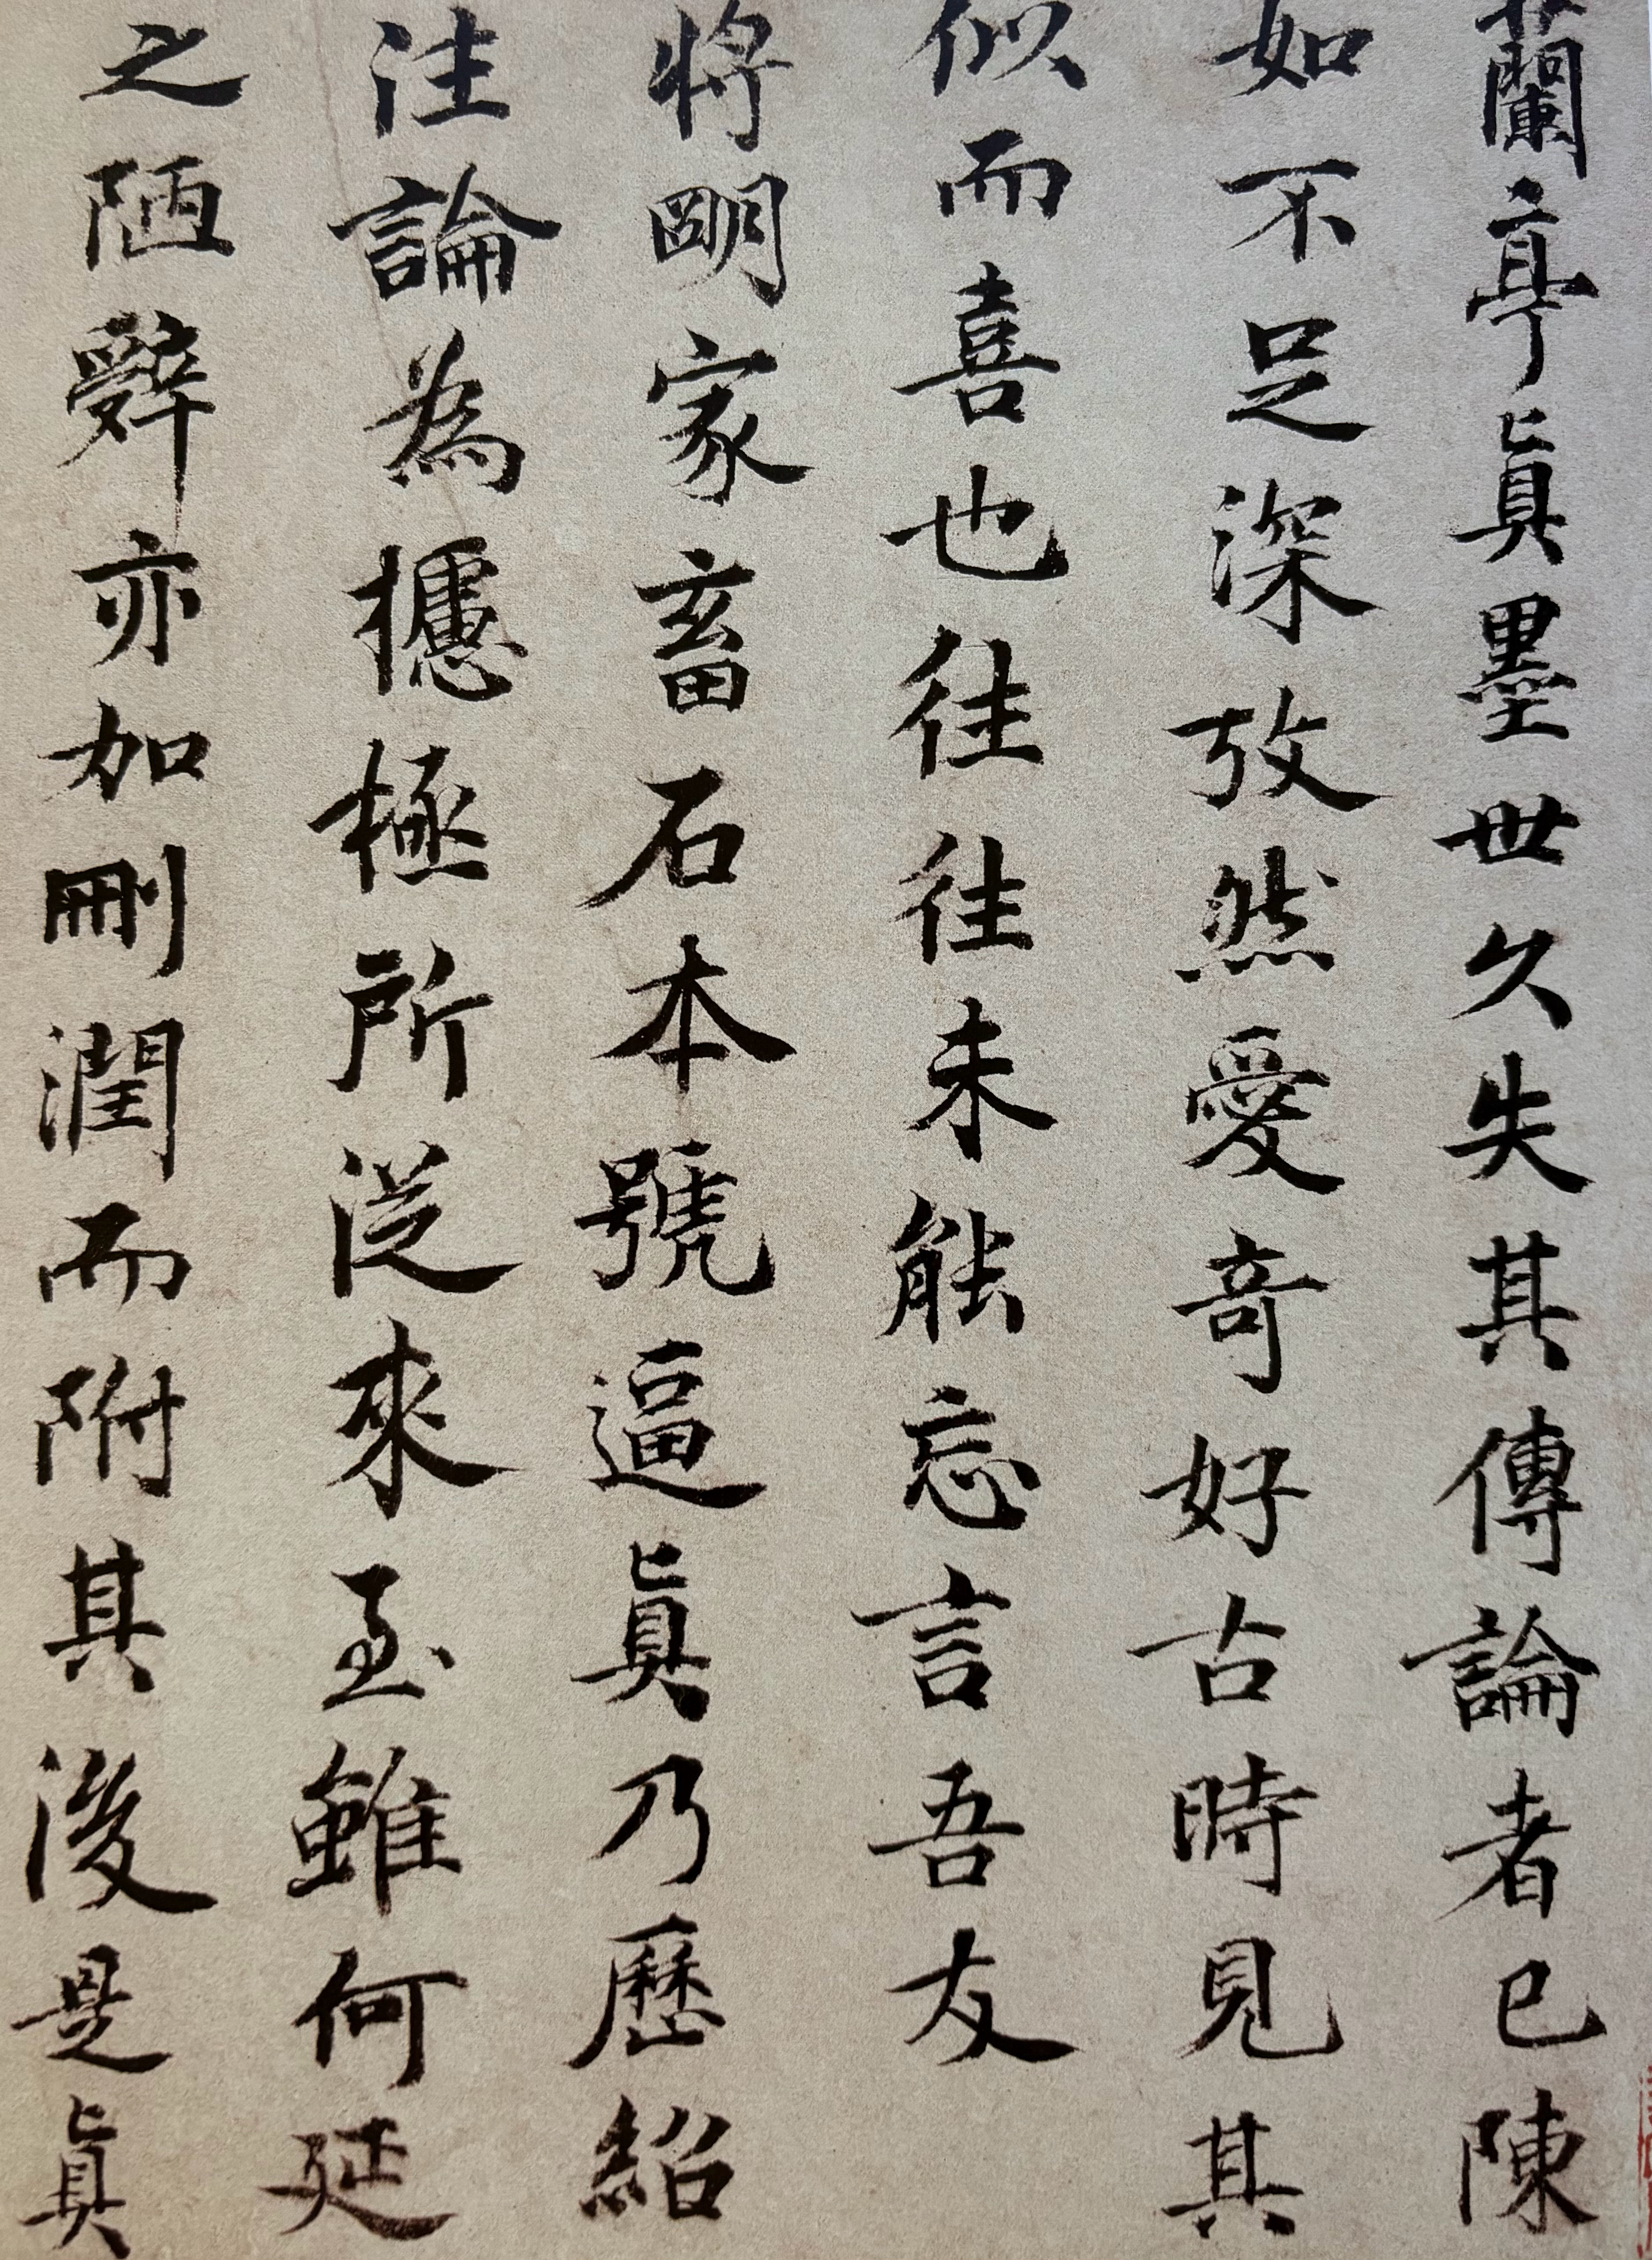 蘭亭眞墨世久失其傳論者已陳
如不足深攷然愛奇好古時見其
似而喜也往往未能忘言吾友
將明家畜石本號逼眞乃歷紹
注論為攄極所從來至雖何延
之陋辭亦加刪潤而附其後是眞